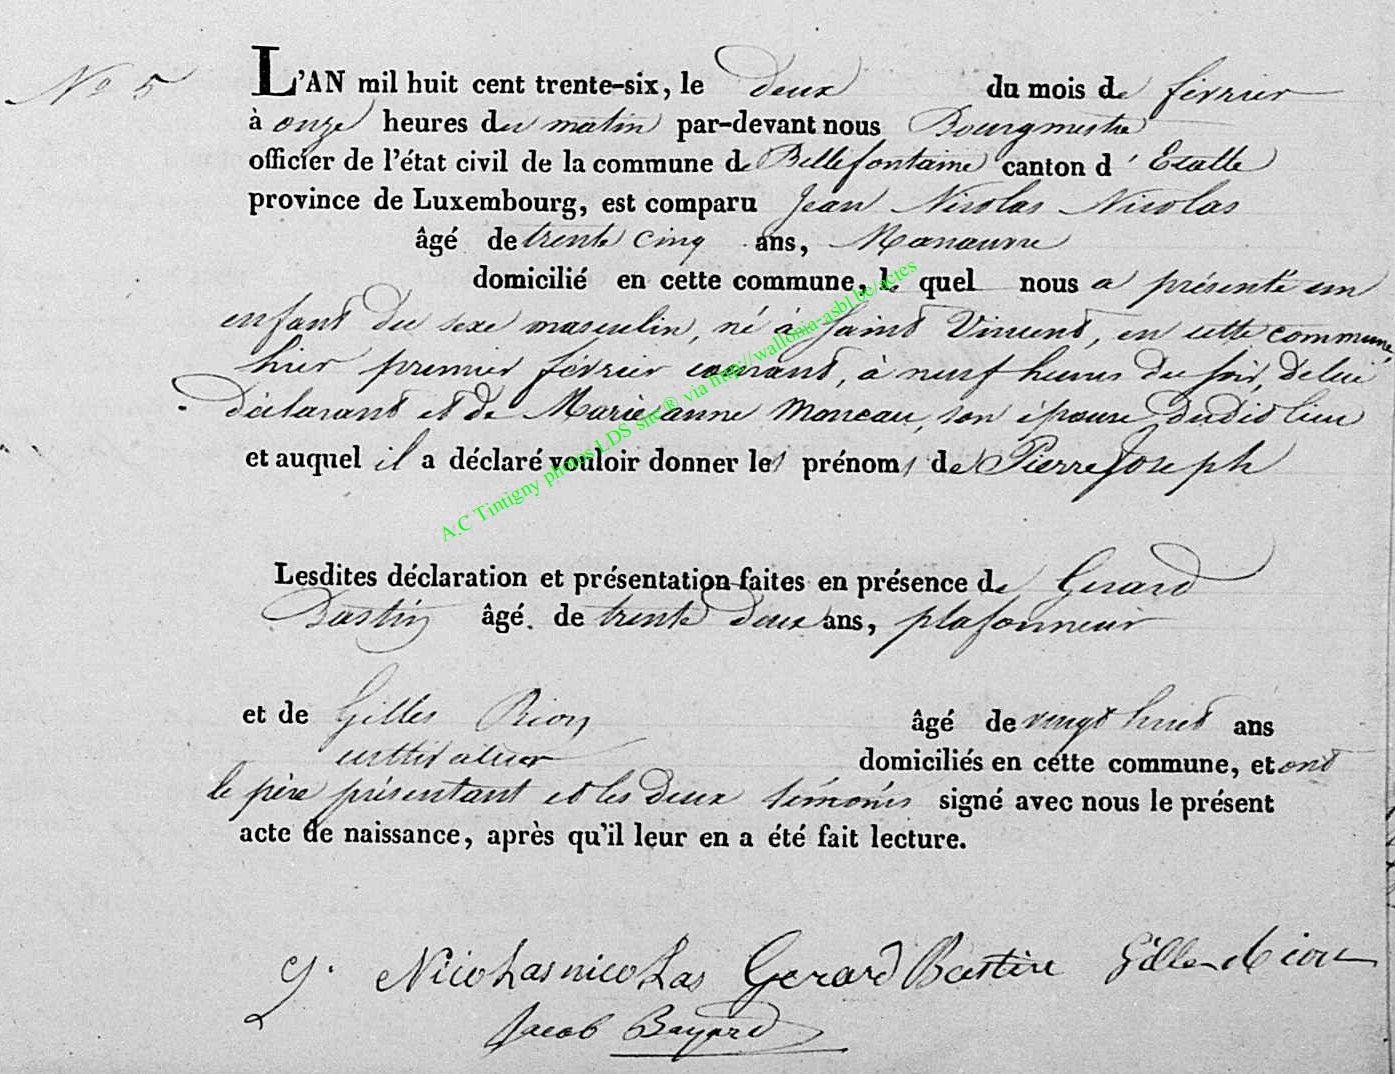 N° 5
L'AN mil huit cent trente-six, le deux du mois de février
à onze heures du matin par-devant nous Bourgmestre
officier de l'état civil de la commune de Bellefontaine canton d'Etalle
province de Luxembourg, est comparu Jean Nicolas Nicolas
âgé de trente cinq ans, Manœuvre
domicilié en cette commune, le quel nous a présenté un
enfant du sexe masculin, né à Saint Vincent, en cette commune,
hier premier février courant, à neuf heures du soir, de lui
déclarant et de Marie anne Monceau, son épouse dudit lieu
et auquel il a déclaré vouloir donner les prénoms de Pierre Joseph
A.C Tintigny photos LDS site® via http://wallonia-asbl.be/actes
Lesdites déclaration et présentation faites en présence de Gerard
Bastin âgé. de trente deux ans, plafonneur
et de Gilles Rion âgé de vingt huit ans
cultivateur domiciliés en cette commune, et ont
le père présentant et les deux témoins signé avec nous le présent
acte de naissance, après qu'il leur en a été fait lecture.
g. Nicolas nicolas Gerard Bastin Gille Rion
Jacob Bayard